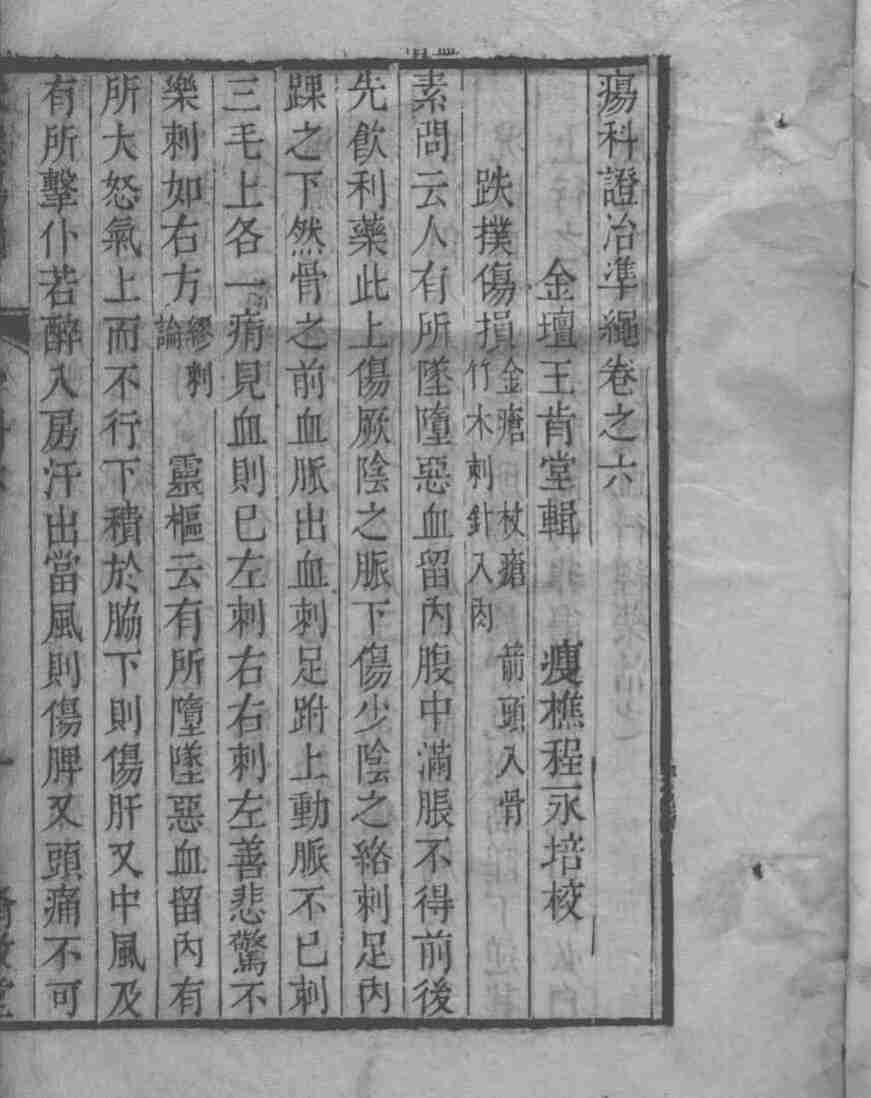 瘍科證治準繩卷之六
金壇王肯堂輯 瘦樵程永培校
跌撲傷損 金瘡 杖瘡 箭頭入骨
竹木刺針入肉
素問云人有所墜墮惡血留內腹中滿脹不得前後
先飲利藥此上傷厥陰之脈下傷少陰之絡刺足內
踝之下然骨之前血脈出血刺足跗上動脈不已刺
三毛上各一痏見血則已左刺右右刺左善悲驚不
樂刺如右方繆刺論 靈樞云有所墮墜惡血留內有
所大怒氣上而不行下積於脇下則傷肝又中風及
有所擊仆若醉入房汗出當風則傷脾又頭痛不可